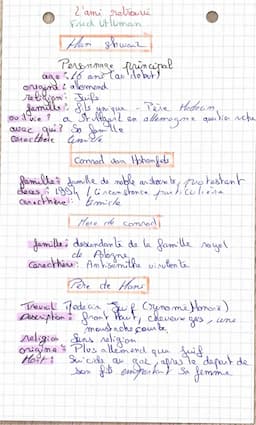 L'ami retrouvé
Fred Uhlman
Han
Personnage principal
age : 16 ans (au début)
origine : allemand
religion : Juif
famille : fils unique - Père Médecin
ou vie ? a Stuttgart en allemagne
avec qui ? Sa famille
caractère timide
Conrad von Hohenfels
famille : famille de noble protestant
caractère : timide
Mère de conrad
famille : descendante de la famille royal
de Pologne
caractère : Antisémite virulente
Père de Hans
Travail Médecin Juif
Description : front Haut, cheveux gris, une
moustache courte
religion Sans religion
origine Plus allemand que Juif
Mort : Suicide au gaz, après le depart de
son fils emportant sa femme